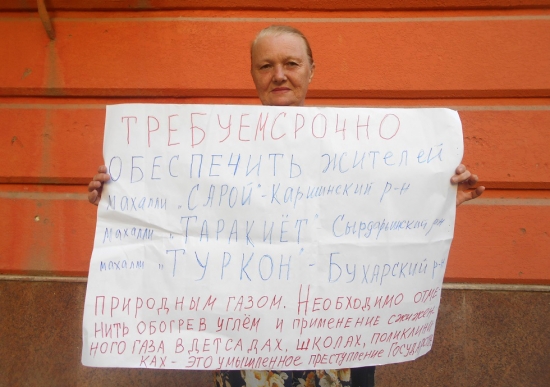 ТРЕБУЕМ СРОЧНО
ОБЕСПЕЧИТЬ ЖИТЕЛЕЙ
МАХАЛЛИ „САРОЙ"-Каршинский р-н
МАХАЛЛИ „ТАРАКИЁТ" Сырдарьинский р-н
МАХАЛЛИ „ТУРКОН"- Бухарский р-н
ПРИРОДНЫМ ГАЗОМ. НЕОБХОДИМО ОТМЕ
НИТЬ ОБОГРЕВ УГЛЁМ И ПРИМЕНЕНИЕ СЖИЖЕН
НОГО ГАЗА В ДЕТСАДАХ, ШКОЛАХ, ПОЛИКЛИНИ
КАХ - ЭТО УМЫШЛЕННОЕ ПРЕСТУПЛЕНИЕ